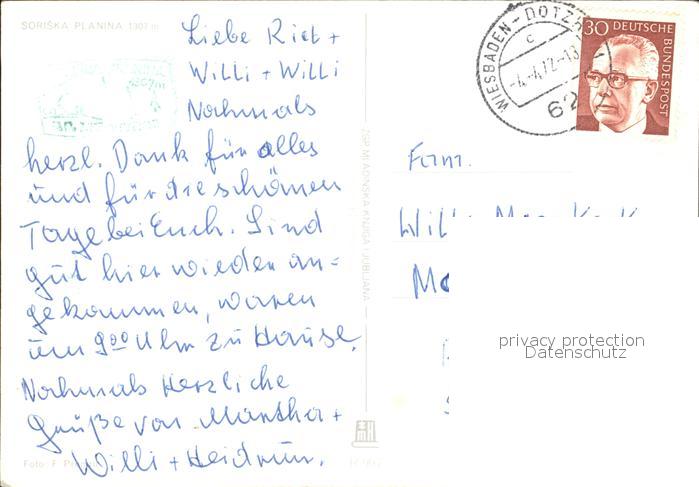 SORIŠKA PLANINA 1307 m
Liebe Riet +
Willi + Willi
Nochmals
herzl. Dank für alles
und für die schönen
Tage bei Euch. Sind
gut hier wieder an=
gekommen, waren
um 9⁰⁰ Uhr zu Hause.
Nochmals Herzliche
Grüße von Martha +
Willi + Heidrun.
Foto: F.
ZGP MLADINSKA KNJIGA LJUBLJANA
WIESBADEN-DOTZ
c
-4.-4.72-13
62
30 DEUTSCHE
BUNDESPOST
Fam.
Willi
privacy protection
Datenschutz